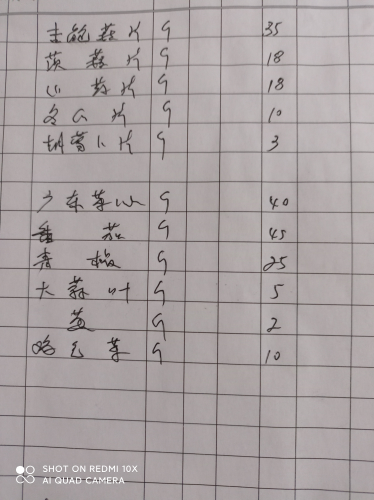 圭鲍菇片 G 35
茨菇片 G 18
山药片 G 18
冬瓜片 G 10
胡萝卜片 G 3
广东菜心 G 40
番茄 G 45
青椒 G 25
大蒜叶 G 5
G 2
G 10
SHOT ON REDMI 10X
AI QUAD CAMERA